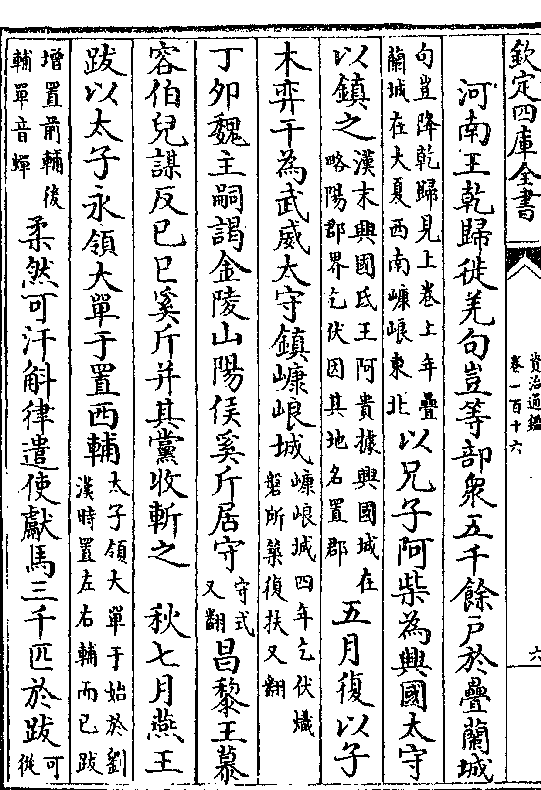 欽定四庫全書
資治通鑑
卷一百十六
六
河南王乾歸徙羌句豈等部衆五千餘戸於疊蘭城
句豈降乾歸見上卷上年疊
蘭城在大夏西南嵻㟍東北
以兄子阿柴為興國太守
以鎮之
漢末興國氐王阿貴據興國城在
略陽郡界乞伏因其地名置郡
五月復以子
木弈干為武威太守鎮嵻㟍城
嵻㟍城四年乞伏熾
磐所築復扶又翻
丁卯魏主嗣謁金陵山陽侯奚斤居守
守式
又翻
昌黎王慕
容伯兒謀反己巳奚斤并其黨收斬之 秋七月燕王
跋以太子永領大單于置四輔
太子領大單于始於劉
漢時置左右輔而已跋
增置前輔後
輔單音蟬
柔然可汗斛律遣使獻馬三千匹於跋
可
從